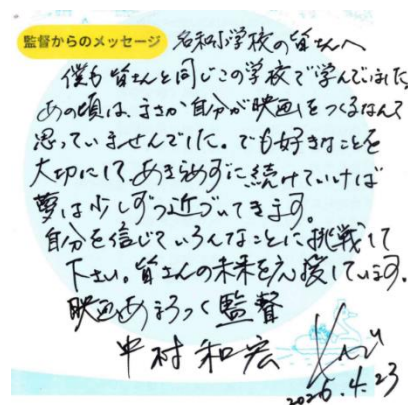 監督からのメッセージ 名和小学校の皆さんへ
僕も皆さんと同じこの学校で学んでいました
あの頃は、まさか自分が映画をつくるなんて
思っていませんでした。でも好きなことを
大切にして、あきらめずに続けていけば
夢は少しずつ近づいてきます。
自分を信じていろんなことに挑戦して
下さい。皆さんの未来を応援しています。
映画あまろっく監督
中村和宏
2026.4.23